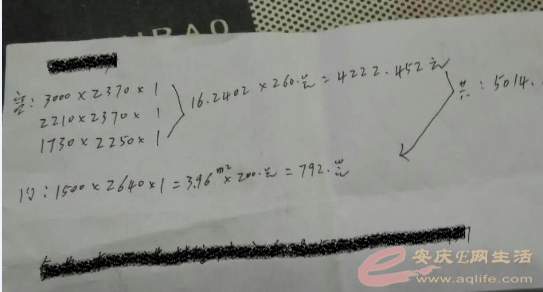 空：3000×2370×1
2210×2370×1
1730×2250×1
16.2402×260.元=4222.452元
共：5014.
门：1500×2640×1=3.96m²×200.元=792.元
安庆E网生活
www.aqlife.com